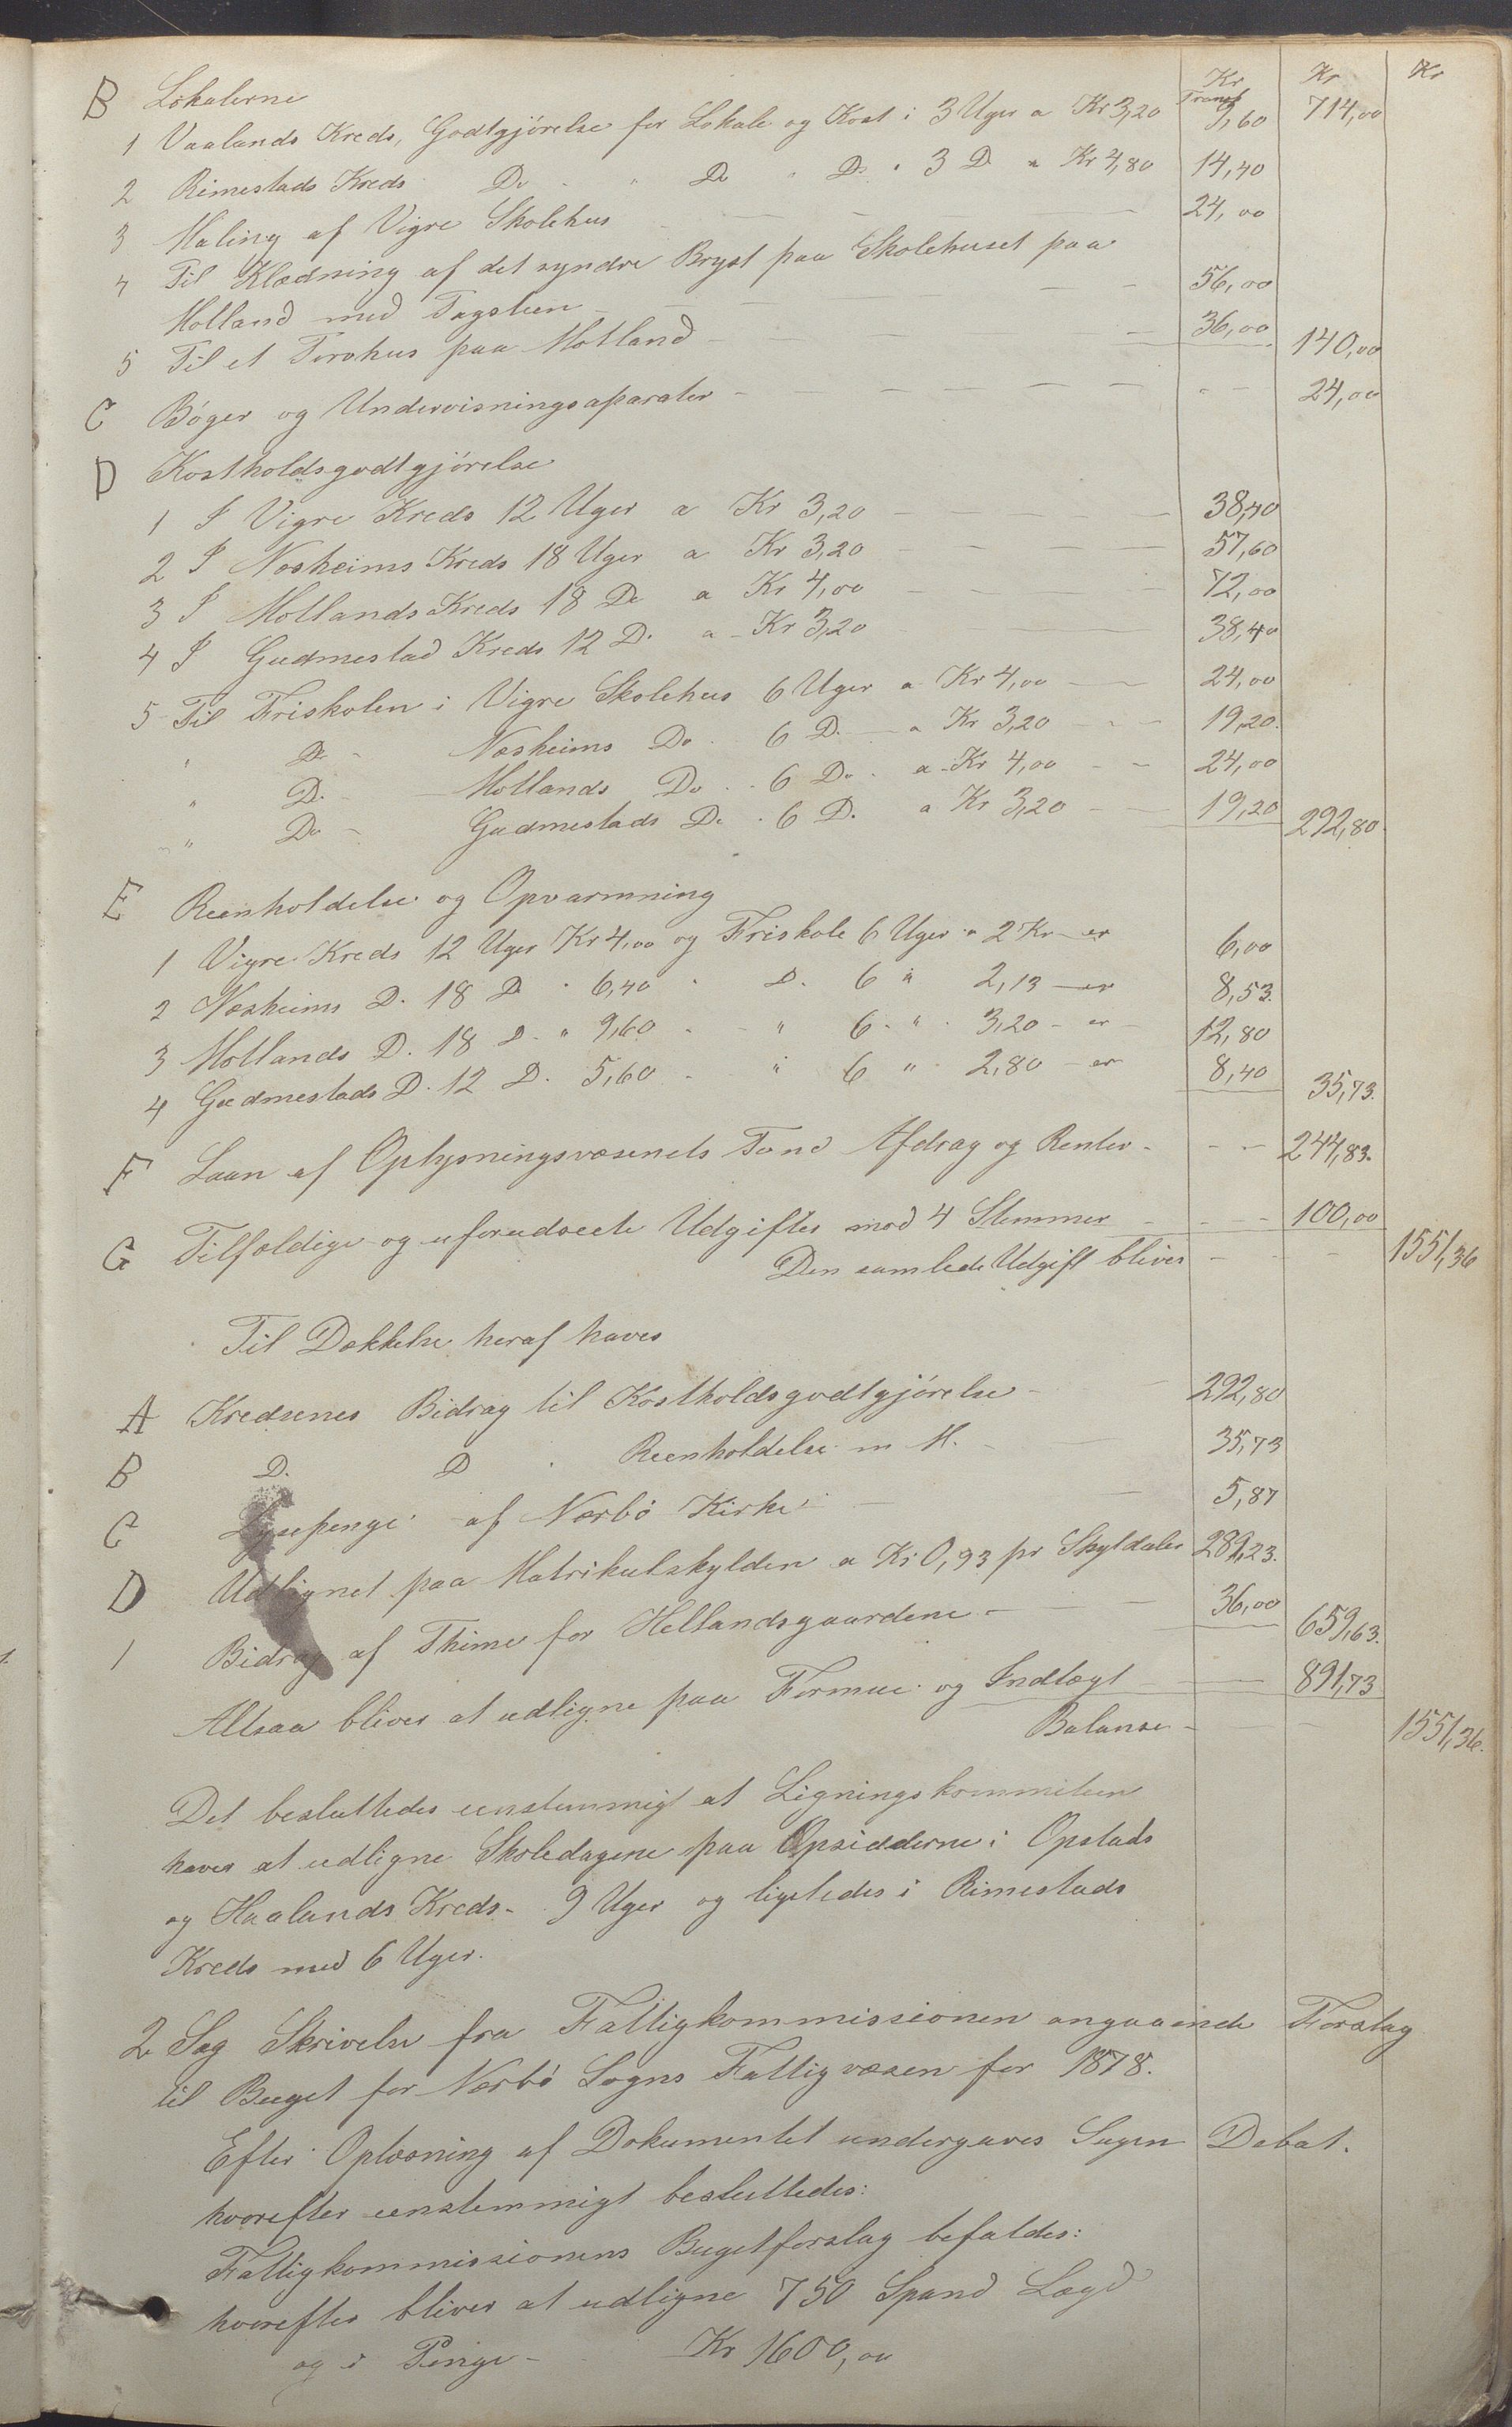 Kr Kr Kr
B Lokalerne Transp 714,00
1 Vaalands Kreds, Godtgjörelse for Lokale og Kost i 3 Uger a Kr 3,20 9,60
2 Rimestads Kreds Do " Do " Do " 3 D. a Kr 4,80 14,40
3 Maling af Vigre Skolehus 24,00
4 Til Klædning af det syndre Bryst paa Skolehuset paa
Motland med Tagsteen 56,00
5 Til et Torvhus paa Motland 36,00 140,00
C Bøger og Undervisningsaparater 24,00
D Kostholdsgodtgjörelse
1 I Vigre Kreds 12 Uger a Kr 3,20 38,40
2 I Næsheims Kreds 18 Uger a Kr 3,20 57,60
3 I Motlands Kreds 18 Do a Kr 4,00 72,00
4 I Gudmestad Kreds 12 D. a Kr 3,20 38,40
5 Til Friskolen i Vigre Skolehus 6 Uger a Kr 4,00 24,00
" Do Næsheims Do 6 D. a Kr 3,20 19,20
" D. Motlands Do 6 Do a Kr 4,00 24,00
" Do Gudmestads Do 6 D. a Kr 3,20 19,20 292,80
E Reenholdelse og Opvarmning
1 Vigre Kreds 12 Uger Kr 4,00 og Friskole 6 Uger a 2 Kr er 6,00
2 Næsheims D. 18 D. " 6,40 " D. 6 " 2,13 er 8,53
3 Motlands D. 18 D. " 9,60 " 6 " 3,20 er 12,80
4 Gudmestads D. 12 D. 5,60 " 6 " 2,80 er 8,40 35,73
F Laan af Oplysningsvæsenets Fond Afdrag og Renter 244,83
G Tilfældige og uforudseete Udgifter mod 4 Stemmer 100,00
Den samlede Udgift bliver 1551,36
Til Dækkelse heraf haves
A Kredsenes Bidrag til Kostholdsgodtgjörelse 292,80
B D. D. Reenholdelse m M. 35,73
C Lysepenge af Nærbö Kirke 5,87
D Udlignet paa Matrikulskylden a Kr 0,93 pr Skyldaler 289,23
1 Bidrag af Thime for Hellandsgaardene 36,00 659,63
Altsaa bliver at udligne paa Formue og Indtægt 891,73
Balanse 1551,36
Det besluttedes eenstemmigt at Ligningskommiteen
haver at udligne Skoledagene paa Opsidderne i Opstads
og Haalands Kreds 9 Uger og ligeledes i Rimestads
Kreds med 6 Uger.
2 Sag Skrivelse fra Fattigkommissionen angaaende Forslag
til Buget for Nærbö Sogns Fattigvæsen for 1878.
Efter Oplæsning af Dokumentet undergaves Sagen Debat.
hvorefter eenstemmigt besluttedes:
Fattigkommissionens Bugetforslag bifaldes:
hvorefter bliver at udligne 750 Spand Lægd
og i Penge Kr 1600,00